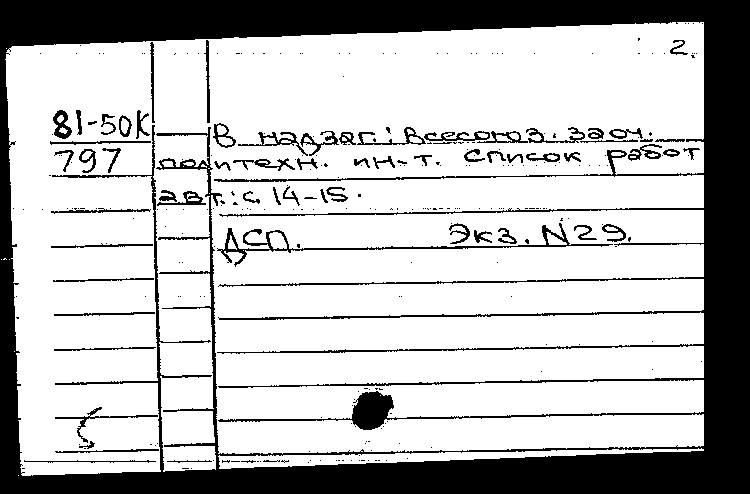 2.
81-50К В надзаг.: Всесоюз. заоч.
797 политехн. ин-т. Список работ
авт.: с. 14-15.
ДСП. Экз. N29.